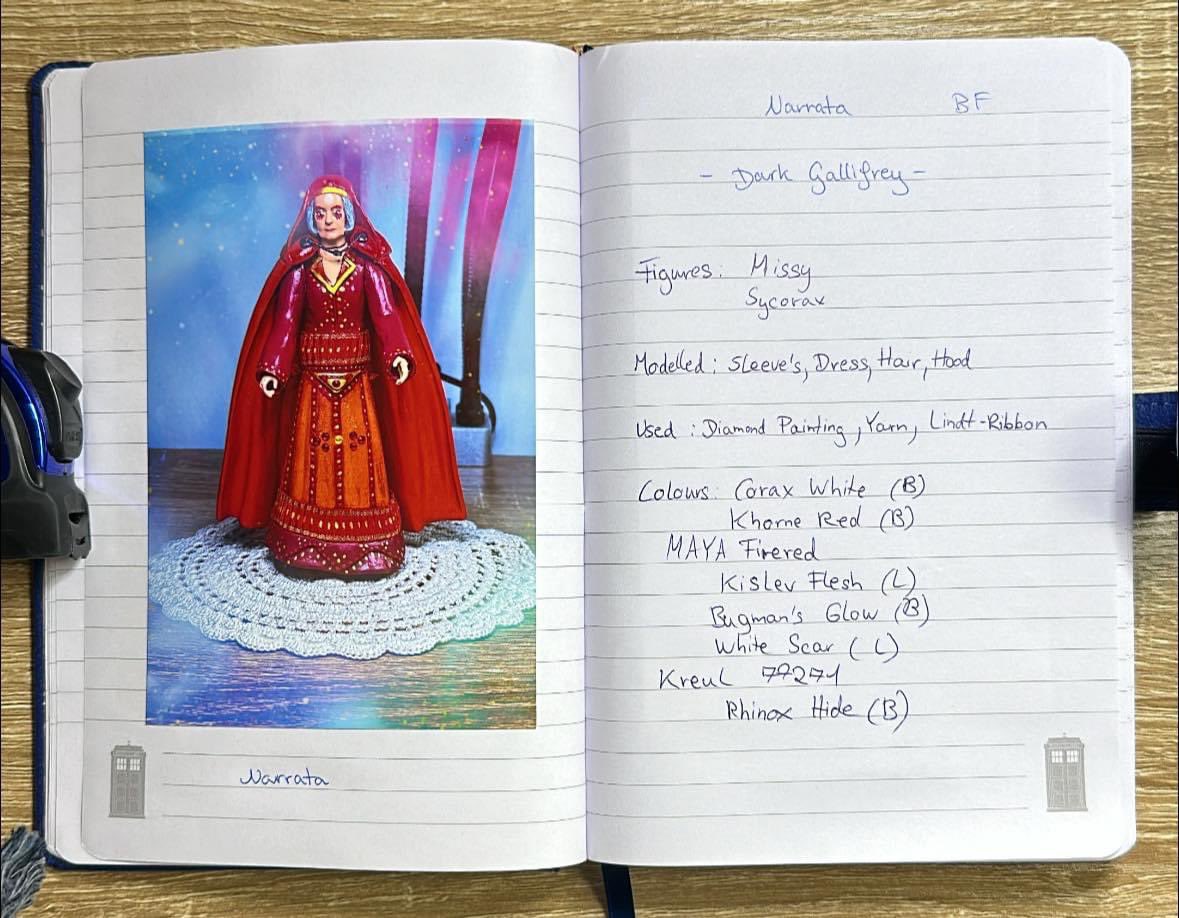 Narrata
Narrata BF
- Dark Gallifrey -
Figures: Missy
Sycorax
Modelled: Sleeve's, Dress, Hair, Hood
Used: Diamond Painting, Yarn, Lindt-Ribbon
Colours: Corax White (B)
Khorne Red (B)
MAYA Firered
Kislev Flesh (L)
Bugman's Glow (B)
White Scar (L)
Kreul
Rhinox Hide (B)